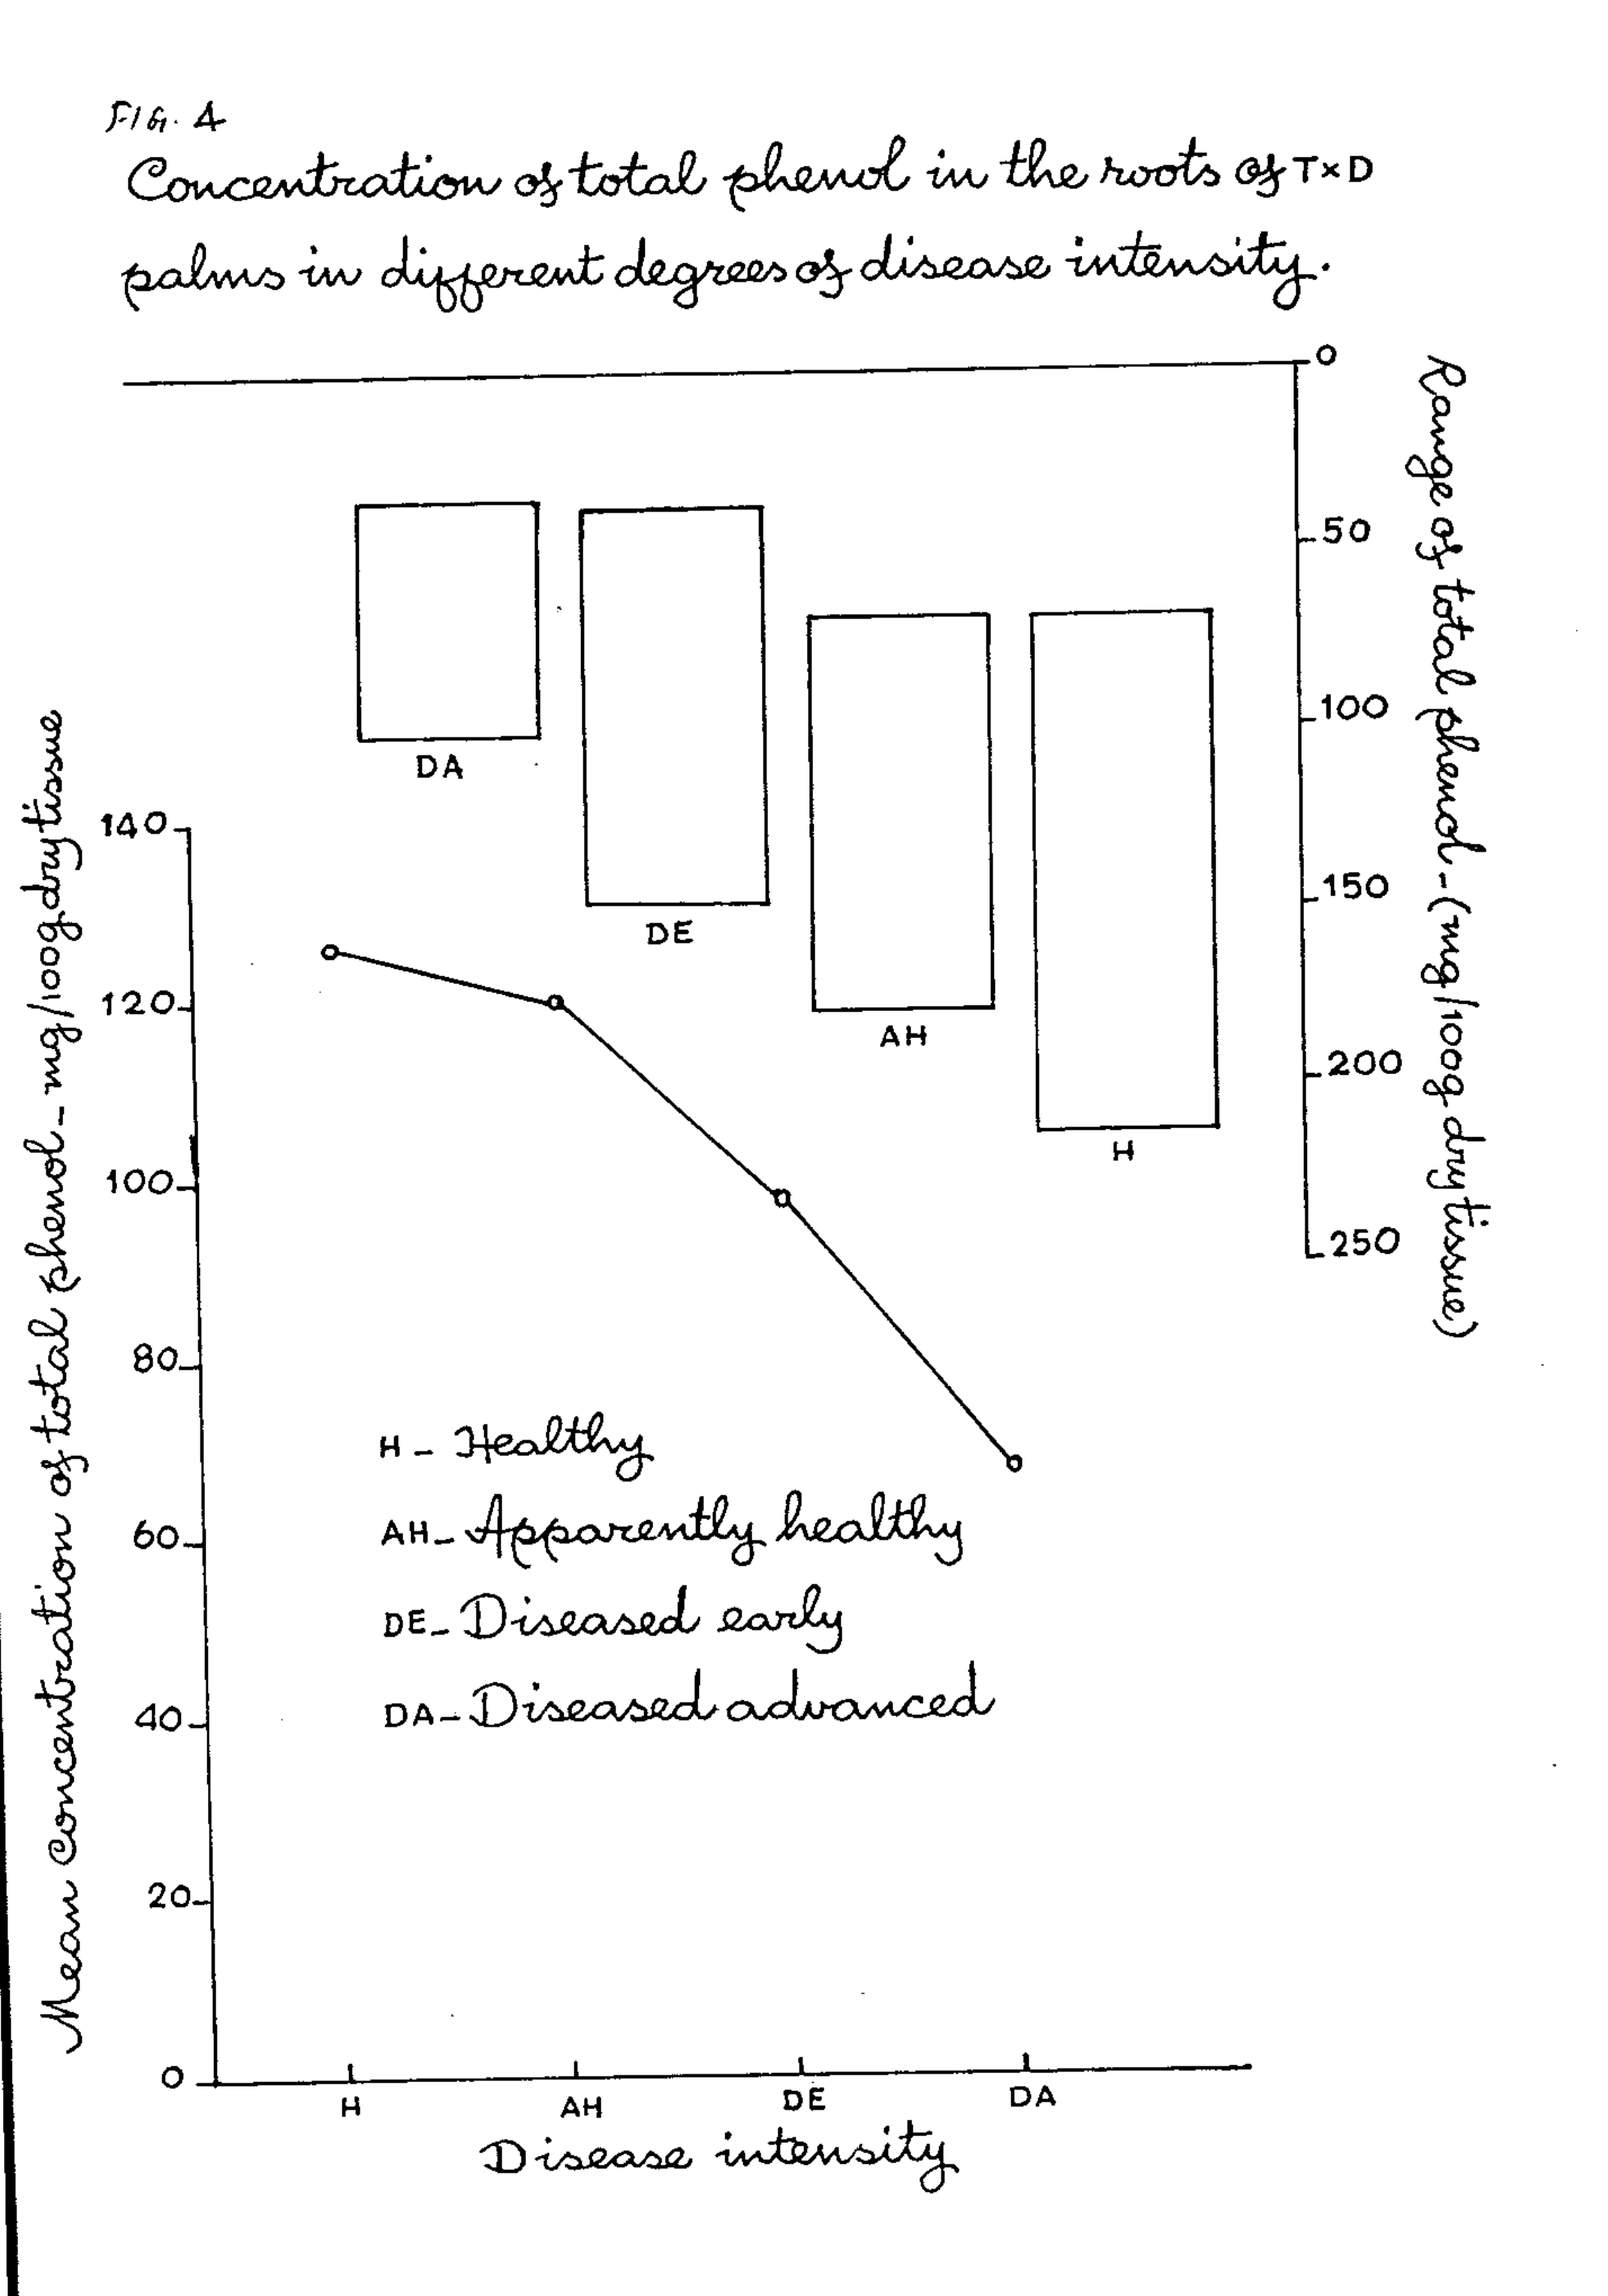 FIG. 4
Concentration of total phenol in the roots of T×D
palms in different degrees of disease intensity.
0
50
100
150
200
250
Range of total phenol - (mg/100g drytissue)
DA
DE
AH
H
Mean concentration of total phenol - mg/100g drytissue
140
120
100
80
60
40
20
0
H - Healthy
AH - Apparently healthy
DE - Diseased early
DA - Diseased advanced
H AH DE DA
Disease intensity